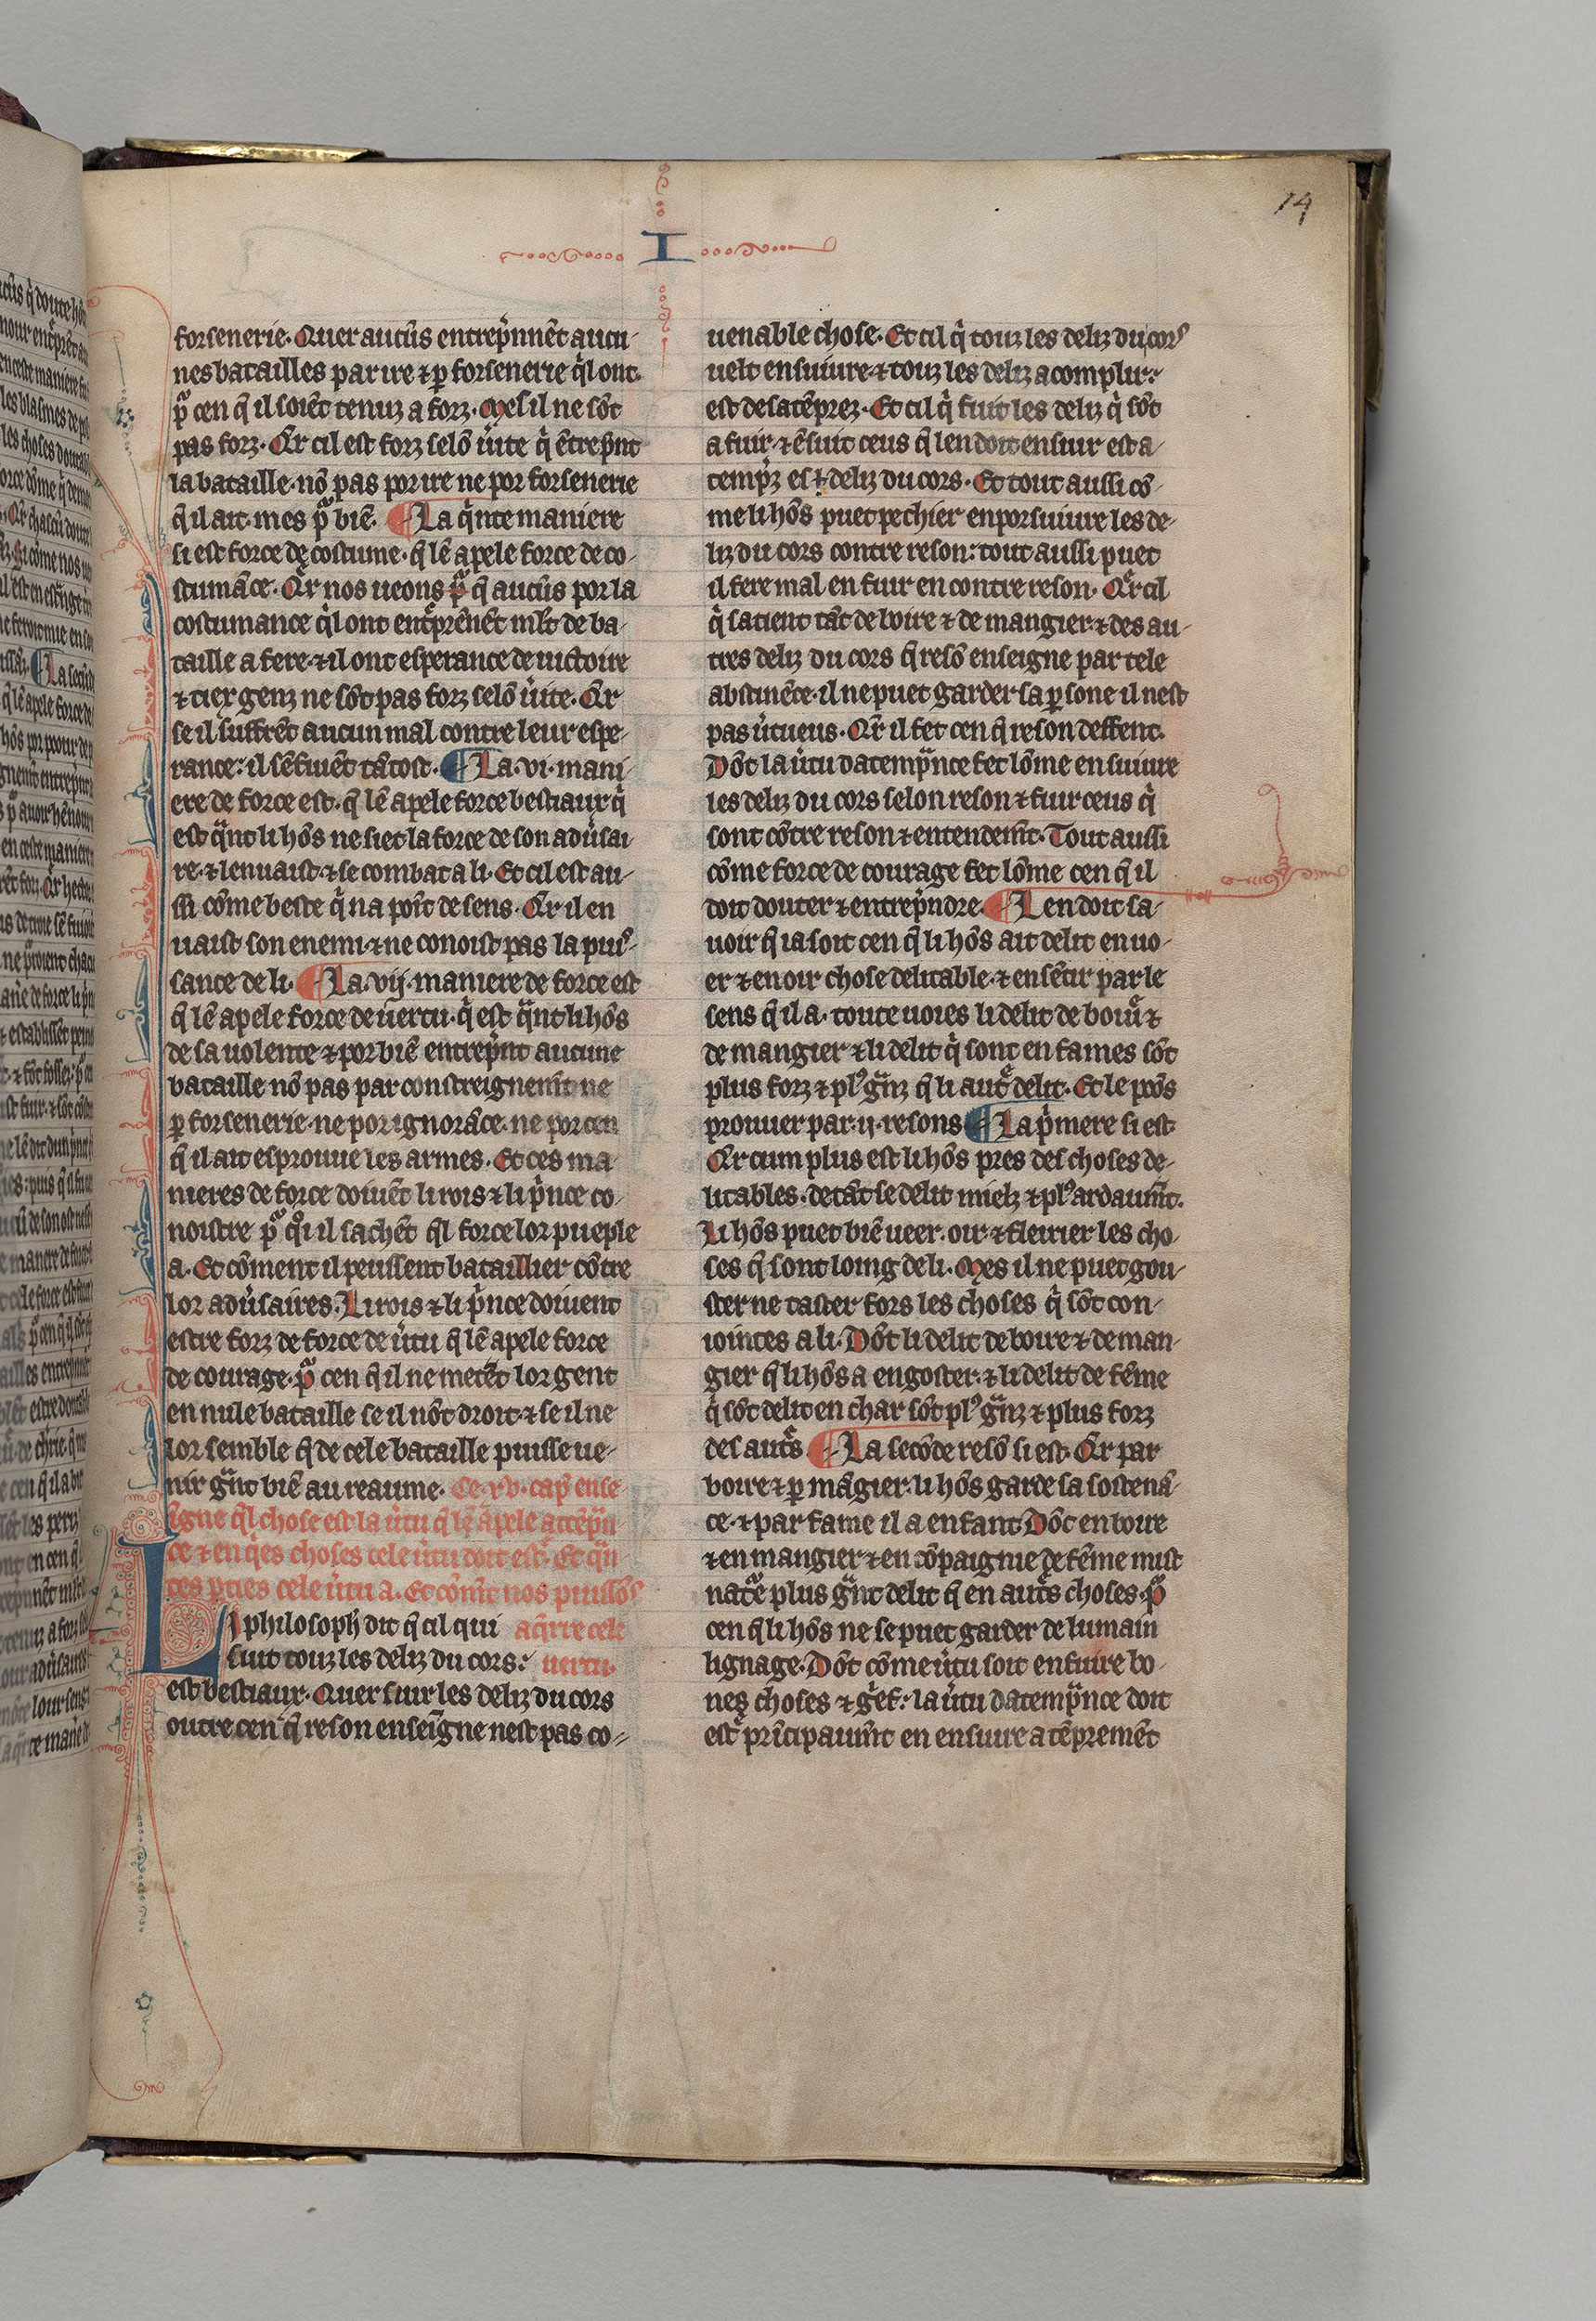 14
I
forsenerie. Quer aucũs entrep̃nnẽt aucu-
nes batailles par ire ⁊ ꝑ forsenerie q̃l ont.
p̃ cen q̃ il soiẽt tenuz a forz. Mes il ne sõt
pas forz. Q̃r cil est forz selõ ũite q̃ ẽtrep̃nt
la bataille. nõ pas por ire ne por forsenerie
q̃ il ait. mes p̃ biẽ. ¶ La q̃nte maniere
si est force de costume. q̃ lẽ apele force de co-
stumãce. Q̃r nos ueons p̃ q̃ aucũs por la
costumance q̃l ont ent̃prẽnẽt ml̃t de ba-
taille a fere. ⁊ il ont esperance de uictoire
⁊ tiex genz ne sõt pas forz selõ ũite. Q̃r
se il suffrẽt aucun mal contre leur espe-
rance: il sẽ fuiẽt tãtost. ¶ La .vi. mani-
ere de force est. q̃ lẽ apele force bestiaux q̃
est q̃nt li hõs ne siet la force de son adũsai-
re. ⁊ lenuaist. ⁊ se combat a li. Et cil est au-
ssi cõme beste q̃ na poĩt de sens. Q̃r il en
uaist son enemi. ⁊ ne conoist pas la puis-
sance de li. ¶ La .vij. maniere de force est
q̃ lẽ apele force de uertu. q̃ est q̃nt li hõs
de sa uolente ⁊ por biẽ entrep̃nt aucune
bataille nõ pas par constreignem̃t ne
ꝑ forsenerie. ne por ignorãce. ne por cen
q̃ il ait esprouue les armes. Et ces ma-
nieres de force doiuẽt li rois ⁊ li p̃nce co-
noistre p̃ q̃i il sachẽt q̃l force lor pueple
a. Et cõment il peussent bataillier cõtre
lor adũsaires. Li rois ⁊ li p̃nce doiuent
estre forz de force de ũtu q̃ lẽ apele force
de courage. p̃ cen q̃ il ne metẽt lor gent
en nule bataille se il nõt droit. ⁊ se il ne
lor semble q̃ de cele bataille puisse ue-
nir g̃nt biẽ au reaume. Ce .xv. cap̃ ense-
igne q̃l chose est la ũtu q̃ lẽ apele attẽp̃n
ce ⁊ en q̃es choses cele ũtu doit est̃. Et q̃n-
tes ꝑties cele ũtu a. Et cõm̃t nos puissõs
Li philosoph̃ dit q̃ cil qui aq̃rre cele
suit touz les deliz du cors: uertu.
est bestiaux. Quer fuir les deliz du cors
outre cen q̃ reson enseigne nest pas co-
uenable chose. Et cil q̃ touz les deliz du cors
uelt ensuiure ⁊ touz les deliz acomplir:
est desatẽprez. Et cil q̃ fuit les deliz q̃ sõt
a fuir. ⁊ ẽsuit ceus q̃ len doit ensuir est a-
temp̃z es deliz du cors. Et tout aussi cõ-
me li hõs puet pechier en porsuiure les de-
liz du cors contre reson: tout aussi puet
il fere mal en fuir en contre reson. Q̃r cil
q̃ satient tãt de boire ⁊ de mangier ⁊ des au-
tres deliz du cors q̃ resõ enseigne par tele
abstinẽce. il ne puet garder sa ꝑsone il nest
pas ũtueus. Q̃r il fet cen q̃ reson deffent.
Dõt la ũtu datemp̃nce fet lõme ensuiure
les deliz du cors selon reson ⁊ fuir ceus q̃
sont cõtre reson ⁊ entendem̃t. Tout aussi
cõme force de courage fet lõme cen q̃ il
doit douter ⁊ entrep̃ndre. ¶ Len doit sa-
uoir q̃ ia soit cen q̃ li hõs ait delit en uo-
er ⁊ en oir chose delitable. ⁊ en sẽtir par le
sens q̃ il a. toute uoies li delit de boiũ ⁊
de mangier ⁊ li delit q̃ sont en fames sõt
plus forz ⁊ plꝰ g̃nz q̃ li aut̃ delit. Et le poõs
prouuer par .ij. resons ¶ La p̃mere si est
Q̃r cum plus est li hõs pres des choses de-
litables. de tãt se delit mielz ⁊ plꝰ ardaum̃t.
Li hõs puet biẽ ueer. oir ⁊ fleirier les cho-
ses q̃ sont loing de li. Mes il ne puet gou-
ster ne taster fors les choses q̃ sõt con-
iointes a li. Dõt li delit de boire ⁊ de man-
gier q̃ li hõs a en goster: ⁊ li delit de fẽme
q̃ sõt delit en char sõt plꝰ g̃nz ⁊ plus forz
des aut̃s. ¶ La secõde resõ si est. Q̃r par
boire ⁊ ꝑ mãgier. li hõs garde sa sostenã-
ce. ⁊ par fame il a enfant. Dõt en boire
⁊ en mangier ⁊ en cõpaignie de fẽme mist
nat̃e plus g̃nt delit q̃ en aut̃s choses. p̃
cen q̃ li hõs ne se puet garder de lumain
lignage. Dõt cõme ũtu soit en fuire bo-
nes choses ⁊ g̃ef: la ũtu datemp̃nce doit
est̃ prĩcipaum̃t en ensuire atẽpremẽt